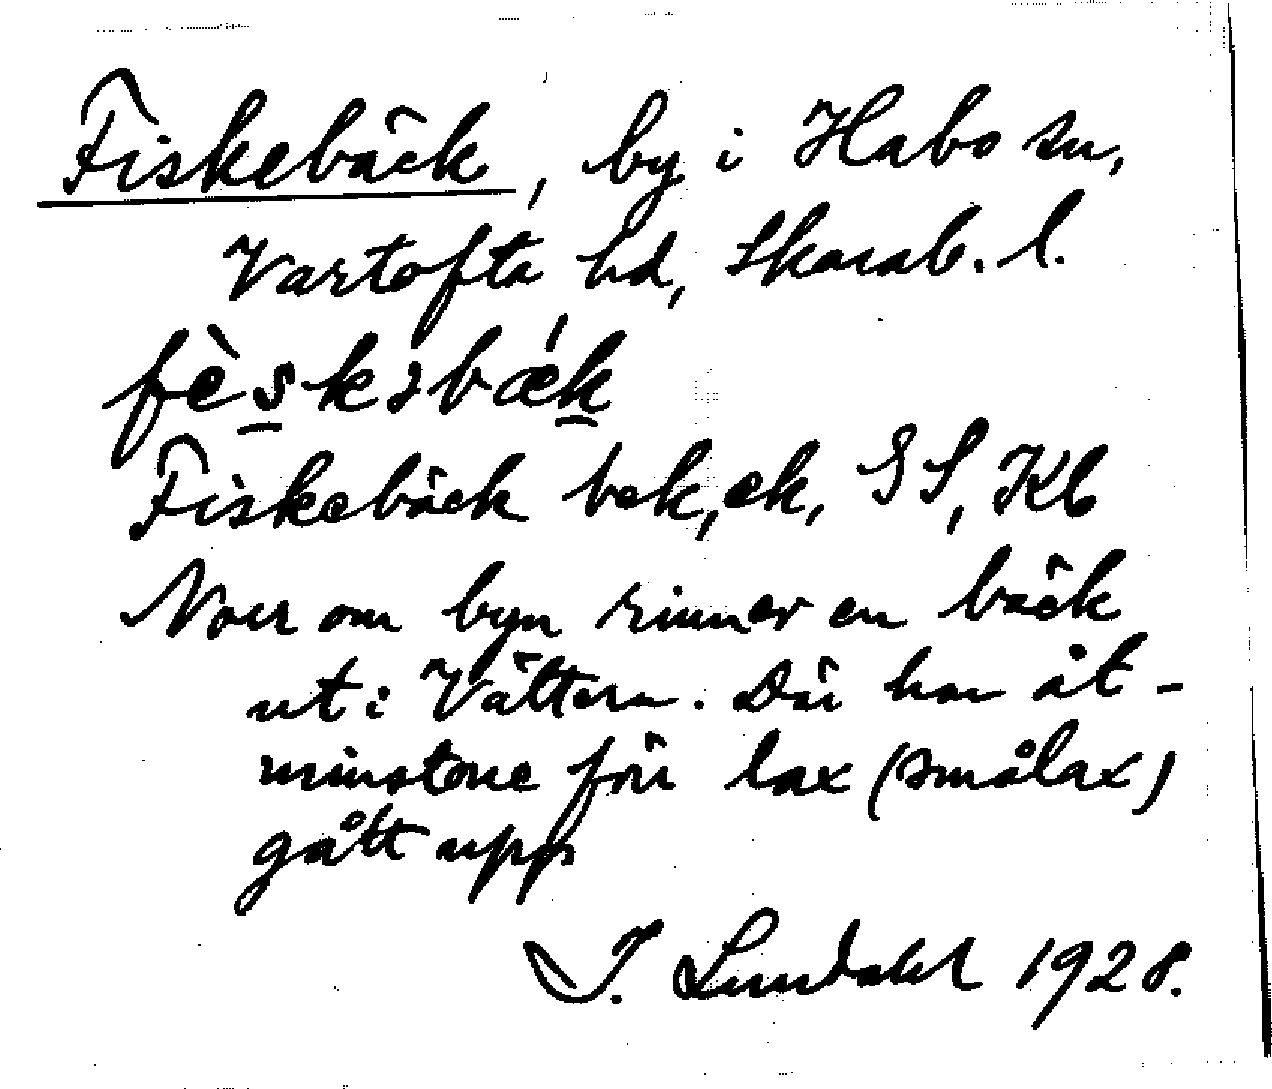 Fiskebäck, by i Habo sn,
Vartofta hd, Skarab. l.
fèskəbǽk
Fiskebäck bek, ek, GS, Kb
Norr om byn rinner en bäck
ut i Vättern. Där har åt-
minstone förr lax (smålax)
gått upp
I. Lundahl 1928.